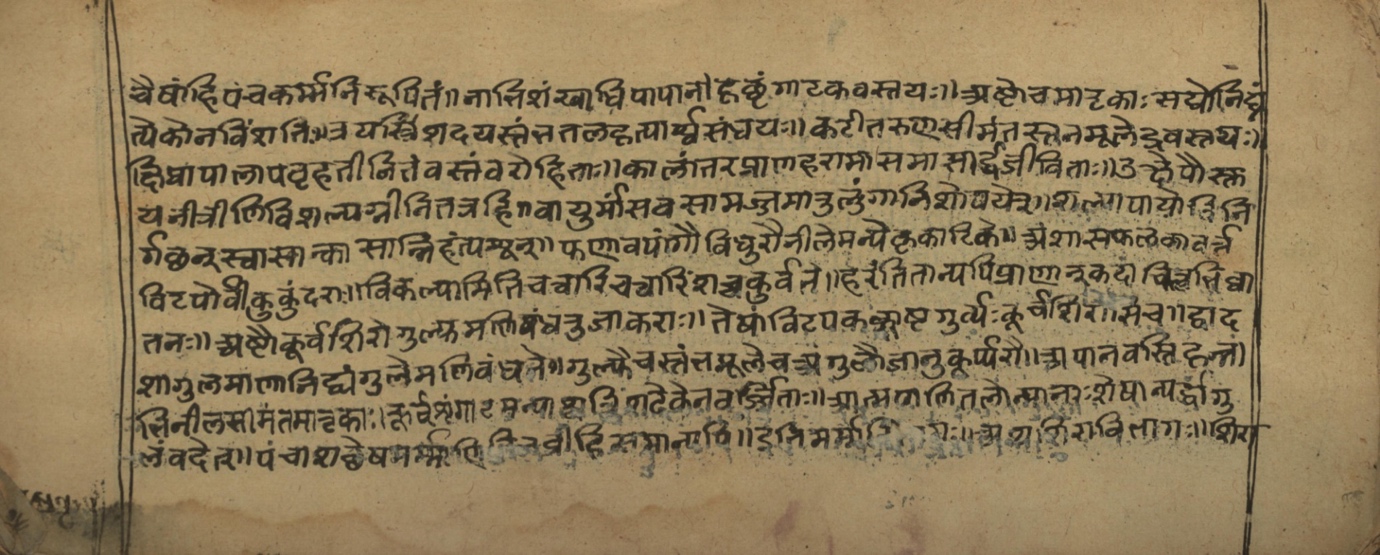 चैषांहि पंचकर्म्म निरूपितं॥ नाभिशंखाधिपापानीहृछृंगाटकवस्तयः॥ अष्टौच मातृकाः सद्योनिघ्नं
त्येकोनविंशतिः॥ त्रयस्त्रिंशदयस्तंत्ततलहृत्पार्श्वसंधयः॥ कटीतरुणसीमंतस्तनमूलेंद्रवस्तयः॥
क्षिप्रापालापबृहतीनितंवस्तंवरोहिताः॥ कालांत्तरप्राणहरामासमासार्द्धजीविताः॥ उत्क्षेपौस्त
यनीत्रीणिविशल्पघ्नीनितत्रहि॥ वायुर्मांसवसामज्जमातुलुंगानिशोषयेत्॥ शल्यापायेविनि
र्गछन् स्वासात्कासान्निहंत्यसून्॥ फणावपांगौविधुरौनीलेमन्येकृकाटिके॥ अंशासफलकावर्त्त
विटपोर्वीकुकुंदराः॥ विकल्यामितिचत्वारिचत्वारिंशच्चकुर्वते॥ हरंतितान्यपिप्राणान्कदाचि
तनः॥ अष्टौकूर्चशिरोगुल्फमणिबंधरुजाकराः॥ तेषांविटपक गुर्व्यः कूर्चशिरांसिच॥ द्वाद
शांगुलमानानिद्व्यंगुलेमणिबंधने॥ गुल्फौचस्तंनमूलेचत्र्यंगुलौजानुकूर्परौ॥ अपानवस्तिहृन्ना
भिनीलसीमंतमातृकाः। कूर्चशृंगाटमन्या त्रिंशदेकेनवर्ज्जिताः॥ आत्मपाणितलोन्मानाः शेषान्यर्द्धांगु
लंवदेत्॥ पंचाशच्छेषमर्माणि व्रीहिसमान्यपि॥ इतिमर्म ॥ अथशिराविभागः॥ शिरा